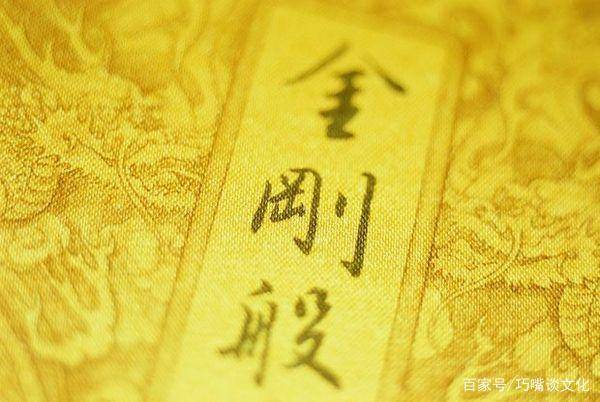 金剛般
百家号/巧嘴谈文化